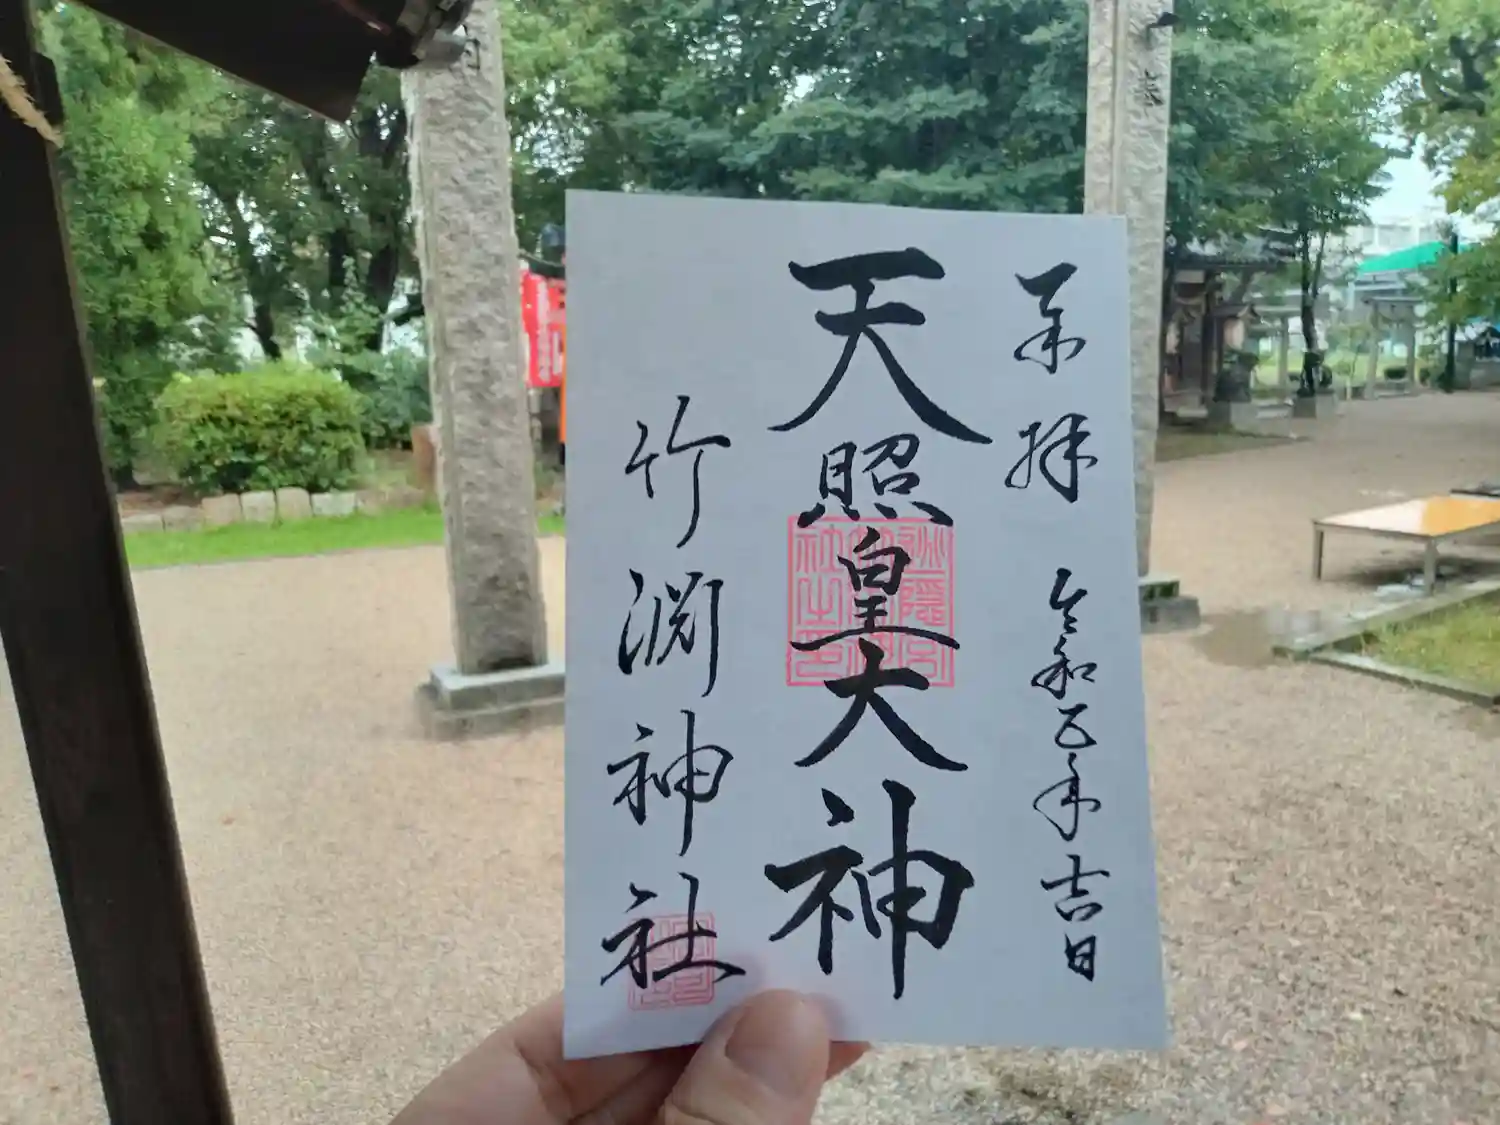 奉拝 令和五年吉日
天照皇大神
竹渕神社